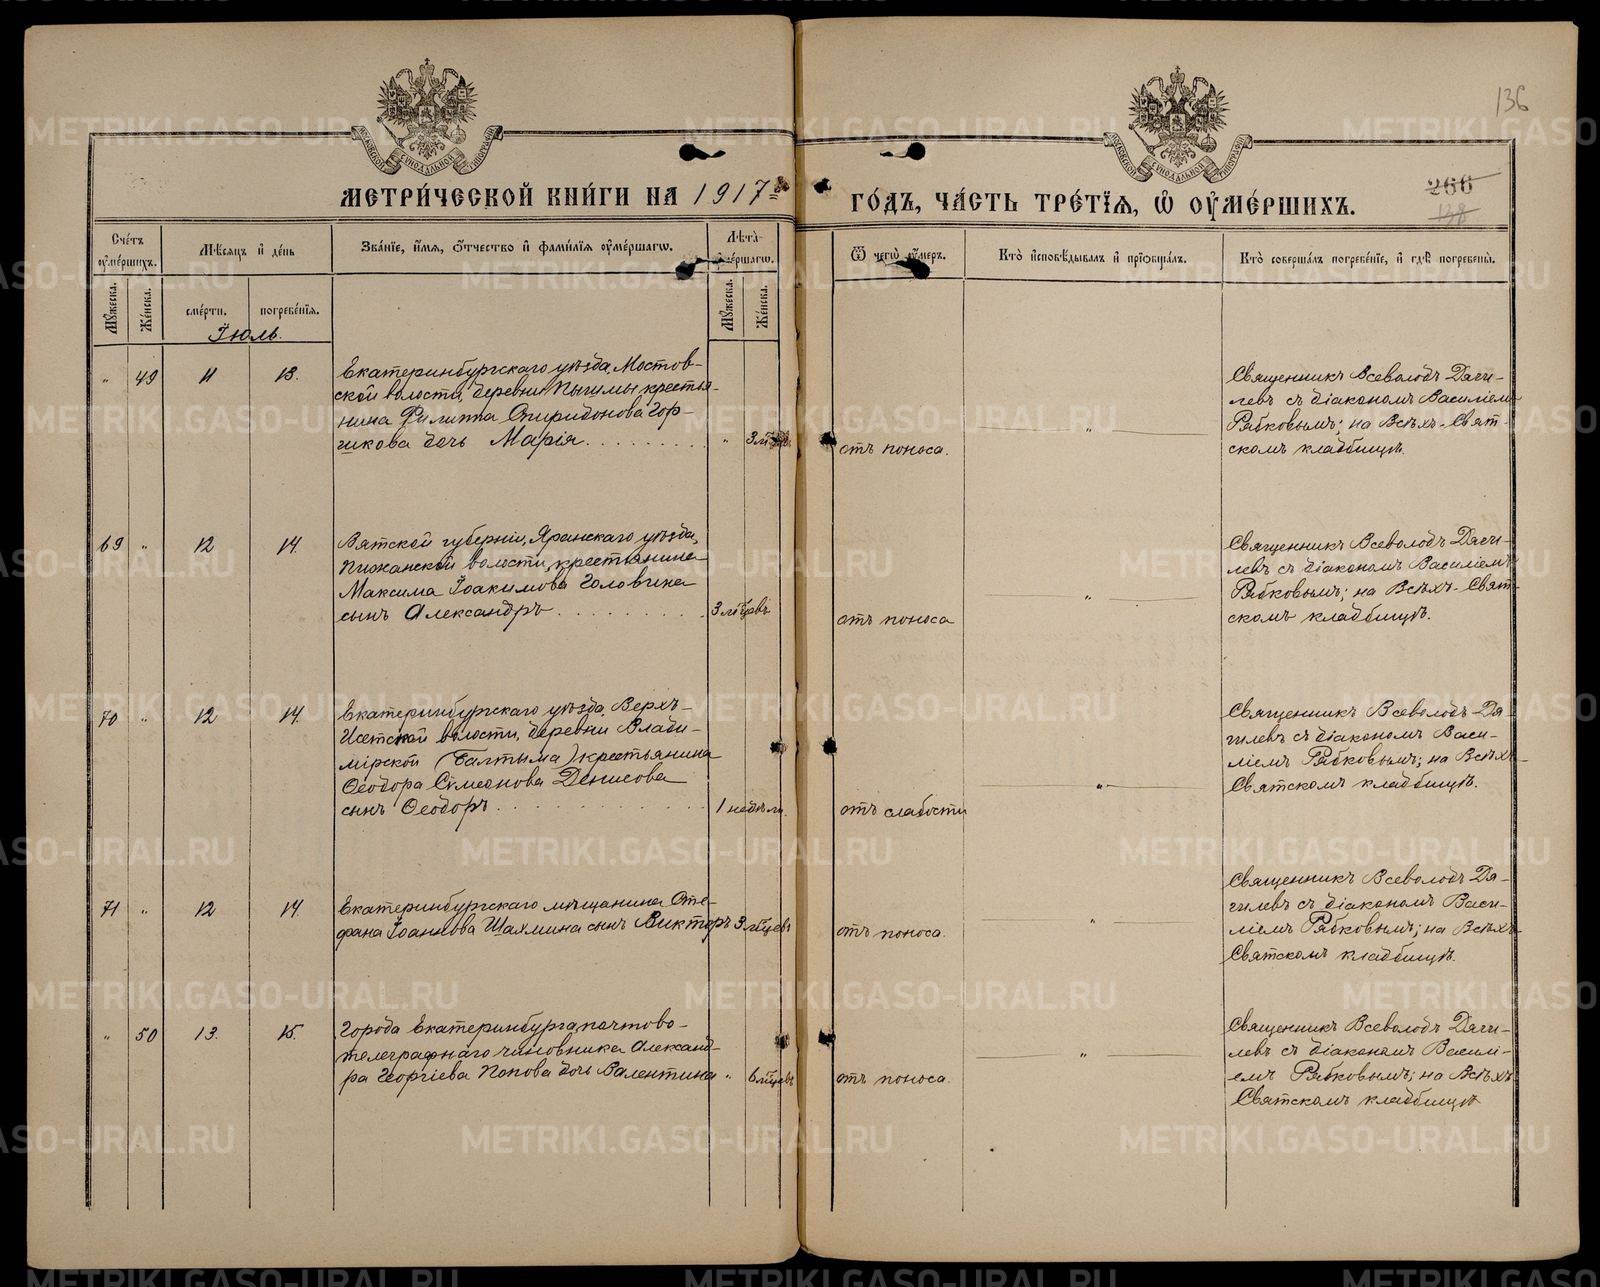 136
МЕТРИ́ЧЕСКОЙ КНИ́ГИ НА 1917
ГО́ДЪ, ЧА́СТЬ ТРЕ́ТІѦ, Ѡ ОУМЕ́РШИХЪ.
266
138
Сче́тъ оумéршихъ.
Мѣ́сѧцъ и де́нь
Зва́нїе, и́мѧ, ѻ́тчество и фамѝлїѧ оумéршагѡ.
Лѣ́та оумéршагѡ.
Ѿ чегѡ̀ оу́меръ.
Кто̀ исповѣ́дывалъ и прїѡбща́лъ.
Кто̀ соверша́лъ погребе́нїе, и гдѣ̀ погребены̀.
Му́жеска.
Же́нска.
сме́рти.
погребе́нїѧ.
Му́жеска.
Же́нска.
Іюль.
" 49 11 13.
Екатеринбургскаго уѣзда, Мостов-
ской волости, деревни Пышмы крестья-
нина Филиппа Спиридонова Гор-
шкова дочь Марія
" 3 мѣсяцевъ
отъ поноса.
"
Священникъ Всеволодъ Дяги-
левъ съ діакономъ Василіемъ
Рябковымъ; на Всѣхъ-Свят-
скомъ кладбищѣ.
69 " 12 14.
Вятской губерніи, Яранскаго уѣзда,
Пижанской волости, крестьянина
Максима Іоакимова Головина
сынъ Александръ
3 мѣсяцевъ
отъ поноса
"
Священникъ Всеволодъ Дяги-
левъ съ діакономъ Василіемъ
Рябковымъ; на Всѣхъ-Свят-
скомъ кладбищѣ.
70 " 12 14.
Екатеринбургскаго уѣзда, Верхъ-
Исетской волости, деревни Влади-
мірской (Балтыма) крестьянина
Ѳеодора Сѵмеонова Денисова
сынъ Ѳеодоръ
1 недѣли
отъ слабости
"
Священникъ Всеволодъ Дя-
гилевъ съ діакономъ Васи-
ліемъ Рябковымъ; на Всѣхъ-
Святскомъ кладбищѣ.
71 " 12 14.
Екатеринбургскаго мѣщанина Сте-
фана Іоаннова Шахмина сынъ Викторъ
3 мѣсяцевъ
отъ поноса.
"
Священникъ Всеволодъ Дя-
гилевъ съ діакономъ Васи-
ліемъ Рябковымъ; на Всѣхъ-
Святскомъ кладбищѣ.
" 50 13. 15.
Города Екатеринбурга, почтово-
телеграфнаго чиновника Александ-
ра Георгіева Попова дочь Валентина
" 6 мѣсяцевъ
отъ поноса.
"
Священникъ Всеволодъ Дяги-
левъ съ діакономъ Василі-
емъ Рябковымъ; на Всѣхъ-
Святскомъ кладбищѣ
METRIKI.GASO-URAL.RU